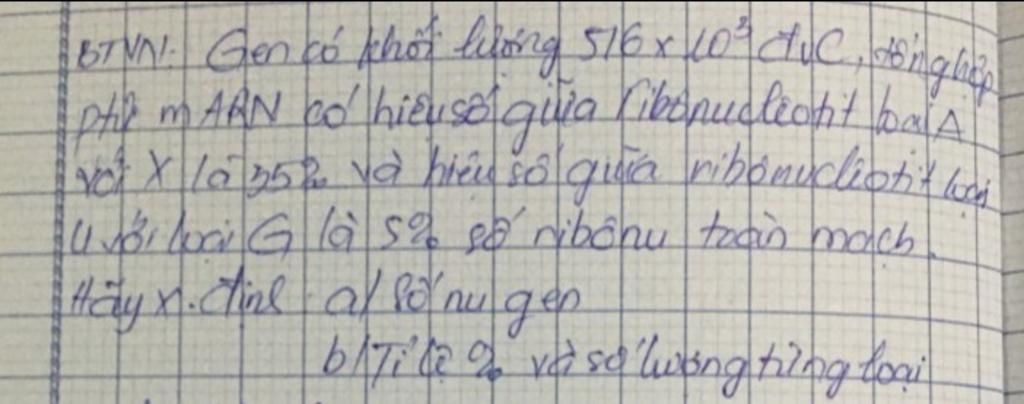 BTVN: Gen có khối lượng 516 x 10³ đvC, tổng hợp
phtử mARN có hiệu số giữa ribônuclêotit loại A
với X là 35% và hiệu số giữa ribônuclêotit loại
U với loại G là 5% số ribônu toàn mạch.
Hãy x.định a/ Số nu gen
b/ Tỉ lệ % và số lượng từng loại